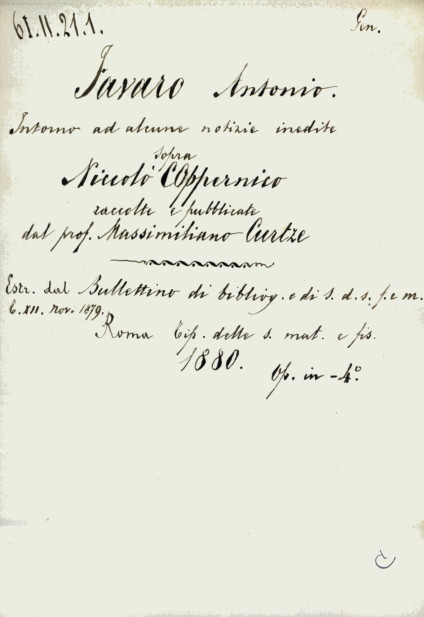 61.11.21.1.
Gen.
Favaro Antonio.
Intorno ad alcune notizie inedite
sopra
Niccolò Coppernico
raccolte e pubblicate
dal prof. Massimiliano Curtze
Estr. dal Bullettino di bibliog. e di s. d. s. f. e m.
t. XII. Nov. 1879.
Roma Tip. delle s. mat. e fis.
1880.
Op. in-4º.